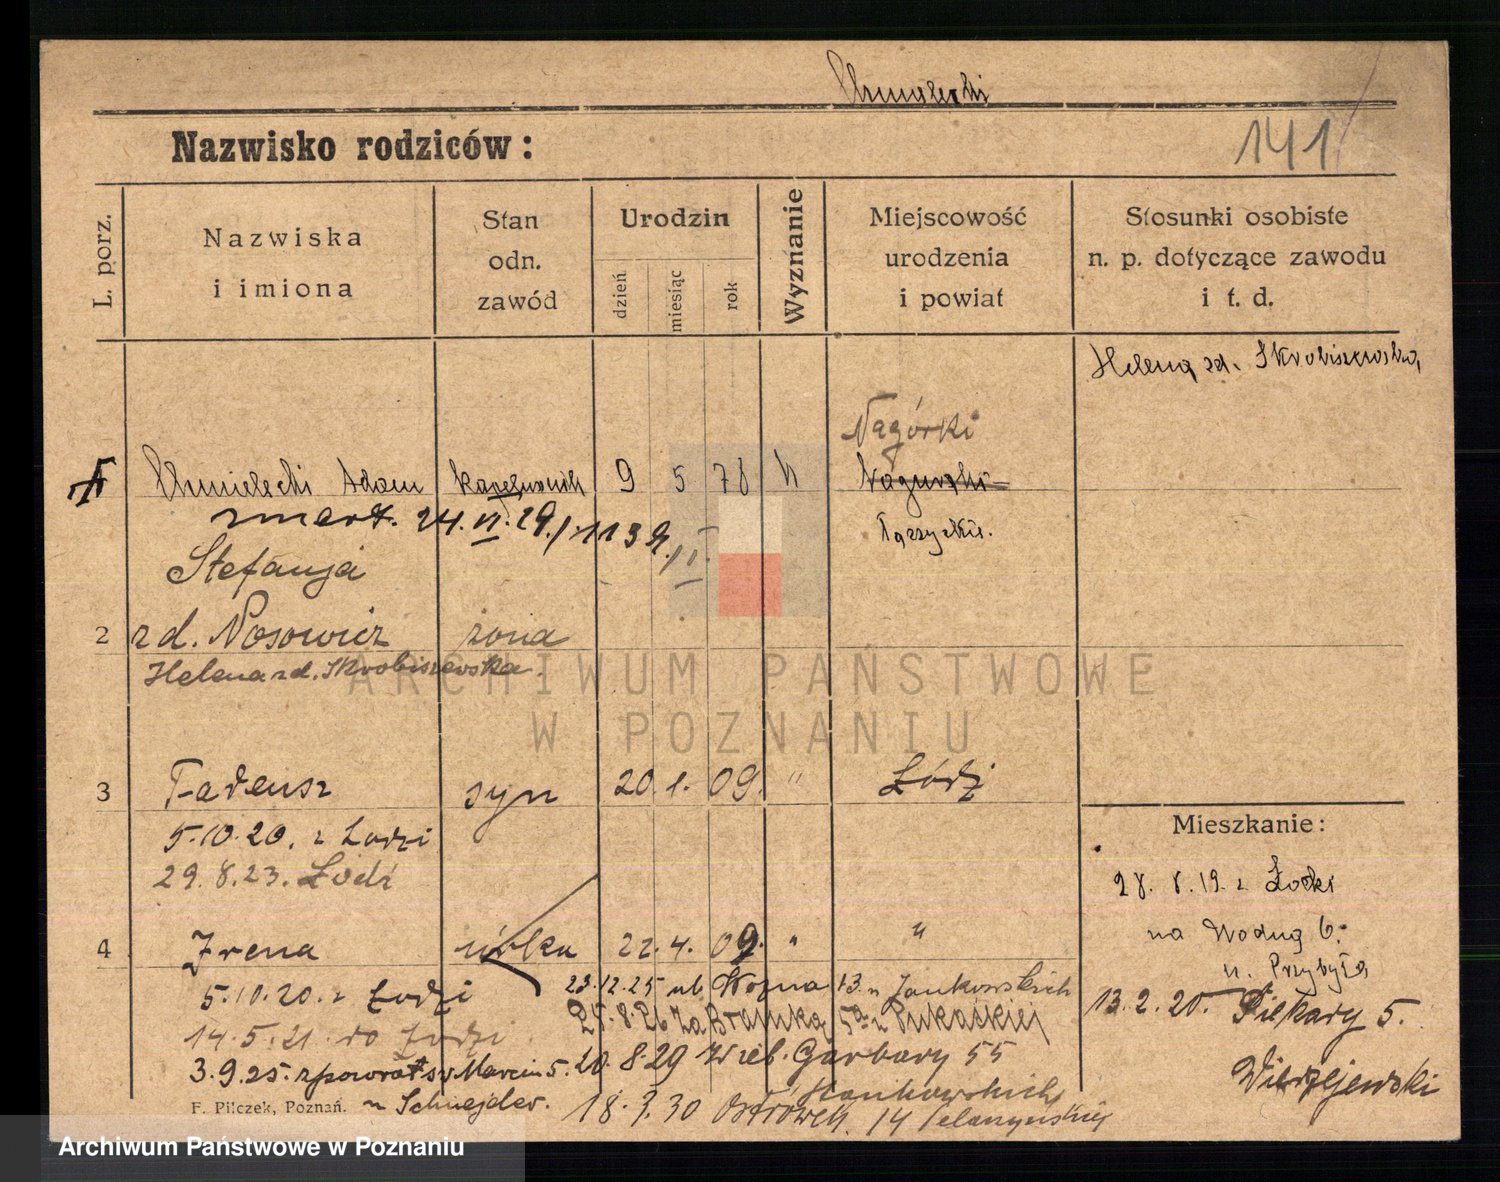 Chmielecki
Nazwisko rodziców:
141
L. porz.
Nazwiska
i imiona
Stan
odn.
zawód
Urodzin
dzień
miesiąc
rok
Wyznanie
Miejscowość
urodzenia
i powiat
Stosunki osobiste
n. p. dotyczące zawodu
i t. d.
Helena zd. Skrobiszewska,
Nagórki
Chmielecki Adam kapelusznik 9 5 78 k
zmarł. 24. VI. 29.
Łęczyckie.
Stefanja
2 zd. Nosowicz żona
Helena zd. Skrobiszewska.
ARCHIWUM PAŃSTWOWE
W POZNANIU
3 Tadeusz syn 20. 1. 09. " Łódź
5.10.20. z Łodzi
29. 8. 23. Łódź
Mieszkanie:
28. 8. 19. z Łodzi
na Wodną 6.
u. Przybyła
13. 2. 20. Piekary 5.
Wierzejewski
4 Irena córka 22. 4. 09. " "
5.10.20. z Łodzi
14.5.21. do Łodzi
3.9.25. zpowrot św Marcin 5.
u Schnejder.
23.12.25 ul Woźna 13. u Jankowskich
25. 8. 26 Za Bramką 5a u Pukackiej
20. 8. 29 Wielk. Garbary 55
Stankowskich
18. 3. 30 Ostrówek. 14
F. Pilczek, Poznań.
Archiwum Państwowe w Poznaniu